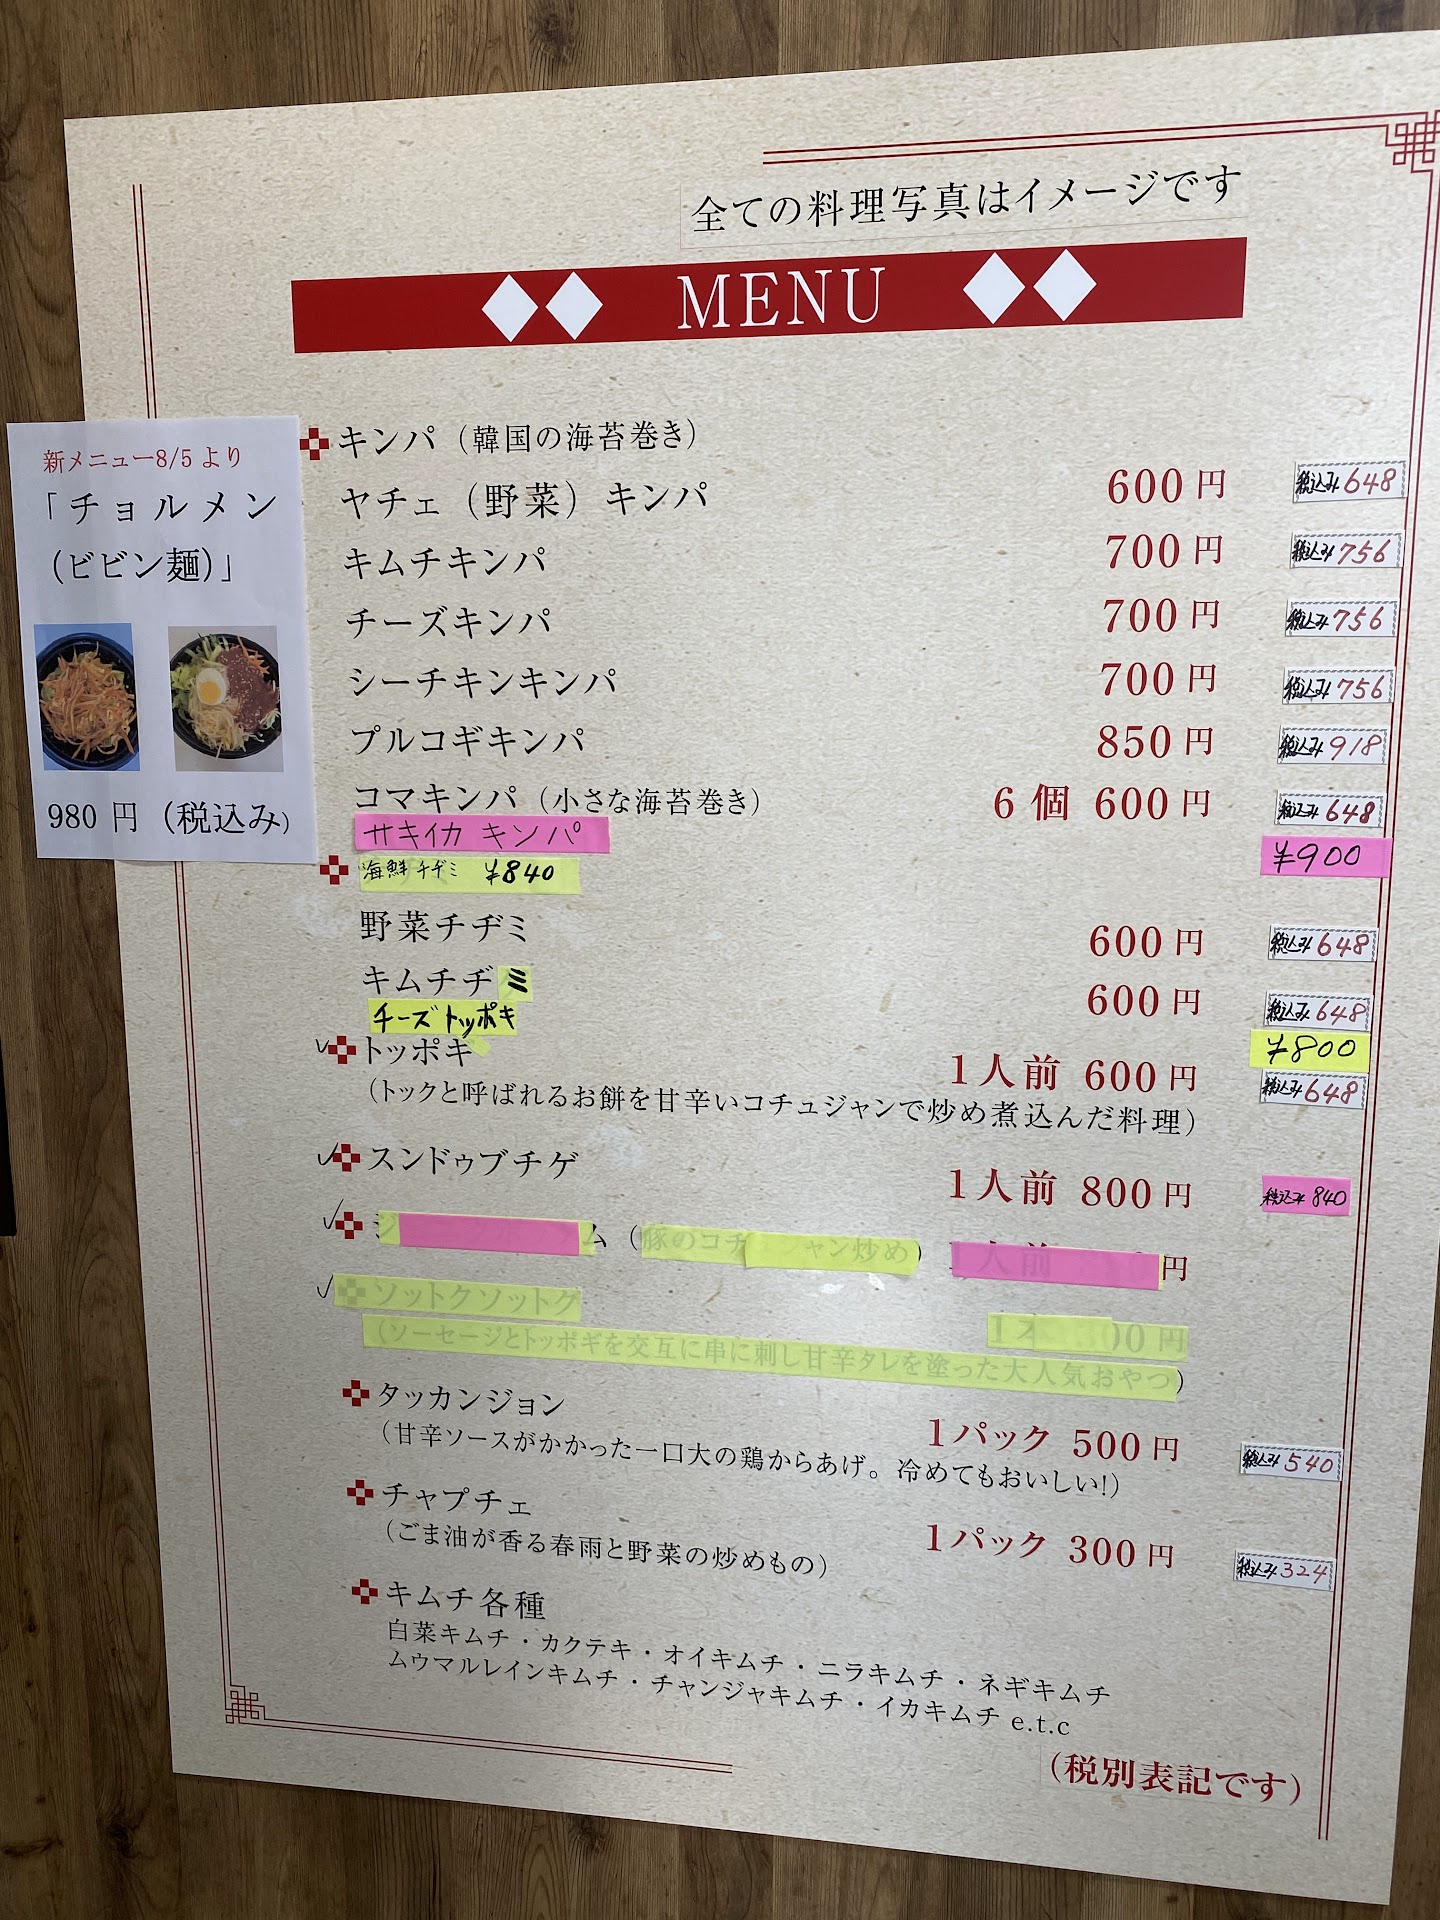 全ての料理写真はイメージです
MENU
新メニュー8/5より
「チョルメン
(ビビン麺)」
980 円 (税込み)
キンパ (韓国の海苔巻き)
ヤチェ (野菜) キンパ 600円 税込み648
キムチキンパ 700円 税込み756
チーズキンパ 700円 税込み756
シーチキンキンパ 700円 税込み756
プルコギキンパ 850円 税込み918
コマキンパ (小さな海苔巻き) 6個 600円 税込み648
サキイカ キンパ ¥900
海鮮チヂミ ¥840
野菜チヂミ 600円 税込み648
キムチヂミ 600円 税込み648
チーズトッポキ ¥800
トッポキ 1人前 600円 税込み648
(トックと呼ばれるお餅を甘辛いコチュジャンで炒め煮込んだ料理)
スンドゥブチゲ 1人前 800円 税込み840
ム (豚のコチ ジャン炒め) 1人前 円
ソットクソットク 1本 00円
(ソーセージとトッポギを交互に串に刺し甘辛タレを塗った大人気おやつ)
タッカンジョン 1パック 500円 税込み540
(甘辛ソースがかかった一口大の鶏からあげ。冷めてもおいしい!)
チャプチェ 1パック 300円 税込み324
(ごま油が香る春雨と野菜の炒めもの)
キムチ各種
白菜キムチ・カクテキ・オイキムチ・ニラキムチ・ネギキムチ
ムウマルレインキムチ・チャンジャキムチ・イカキムチ e.t.c
(税別表記です)